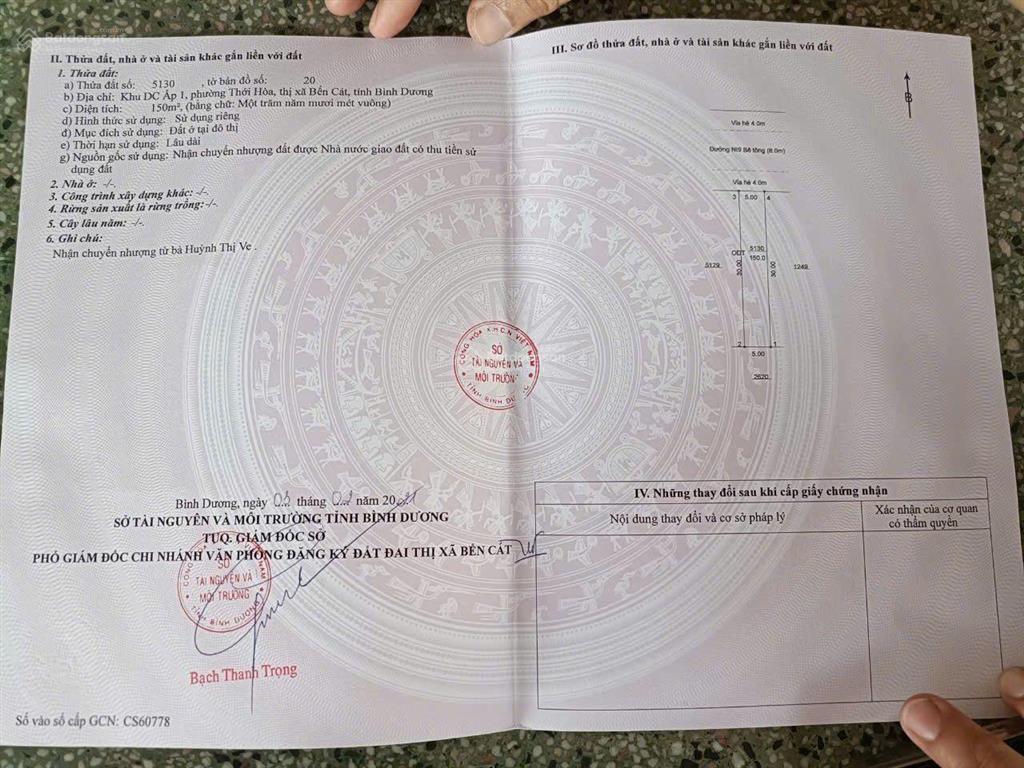 Batdongsan
II. Thửa đất, nhà ở và tài sản khác gắn liền với đất
1. Thửa đất:
a) Thửa đất số: 5130 , tờ bản đồ số: 20
b) Địa chỉ: Khu DC Ấp 1, phường Thới Hòa, thị xã Bến Cát, tỉnh Bình Dương
c) Diện tích: 150m², (bằng chữ: Một trăm năm mươi mét vuông)
d) Hình thức sử dụng: Sử dụng riêng
đ) Mục đích sử dụng: Đất ở tại đô thị
e) Thời hạn sử dụng: Lâu dài
g) Nguồn gốc sử dụng: Nhận chuyển nhượng đất được Nhà nước giao đất có thu tiền sử
dụng đất
2. Nhà ở: -/-.
3. Công trình xây dựng khác: -/-.
4. Rừng sản xuất là rừng trồng:-/-.
5. Cây lâu năm: -/-.
6. Ghi chú:
Nhận chuyển nhượng từ bà Huỳnh Thị Ve .
CỘNG HÒA X.H.C.N VIỆT NAM
SỞ
TÀI NGUYÊN VÀ
MÔI TRƯỜN
TỈNH BÌNH DƯ
Bình Dương, ngày tháng năm 20
SỞ TÀI NGUYÊN VÀ MÔI TRƯỜNG TỈNH BÌNH DƯƠNG
TUQ. GIÁM ĐỐC SỞ
PHÓ GIÁM ĐỐC CHI NHÁNH VĂN PHÒNG ĐĂNG KÝ ĐẤT ĐAI THỊ XÃ BẾN CÁT
SỞ
TÀI NGUYÊN VÀ
MÔI TRƯỜNG
TỈNH BÌNH DƯƠNG
Bạch Thanh Trọng
Số vào sổ cấp GCN: CS60778
III. Sơ đồ thửa đất, nhà ở và tài sản khác gắn liền với đất
B
Vỉa hè 4.0m
Đường NI9 Bê tông (8.0m)
Vỉa hè 4.0m
3 5.00 4
5129 ODT 5130 1249
30.00 150.0 30.00
2 1
5.00
2620
IV. Những thay đổi sau khi cấp giấy chứng nhận
Nội dung thay đổi và cơ sở pháp lý
Xác nhận của cơ quan
có thẩm quyền